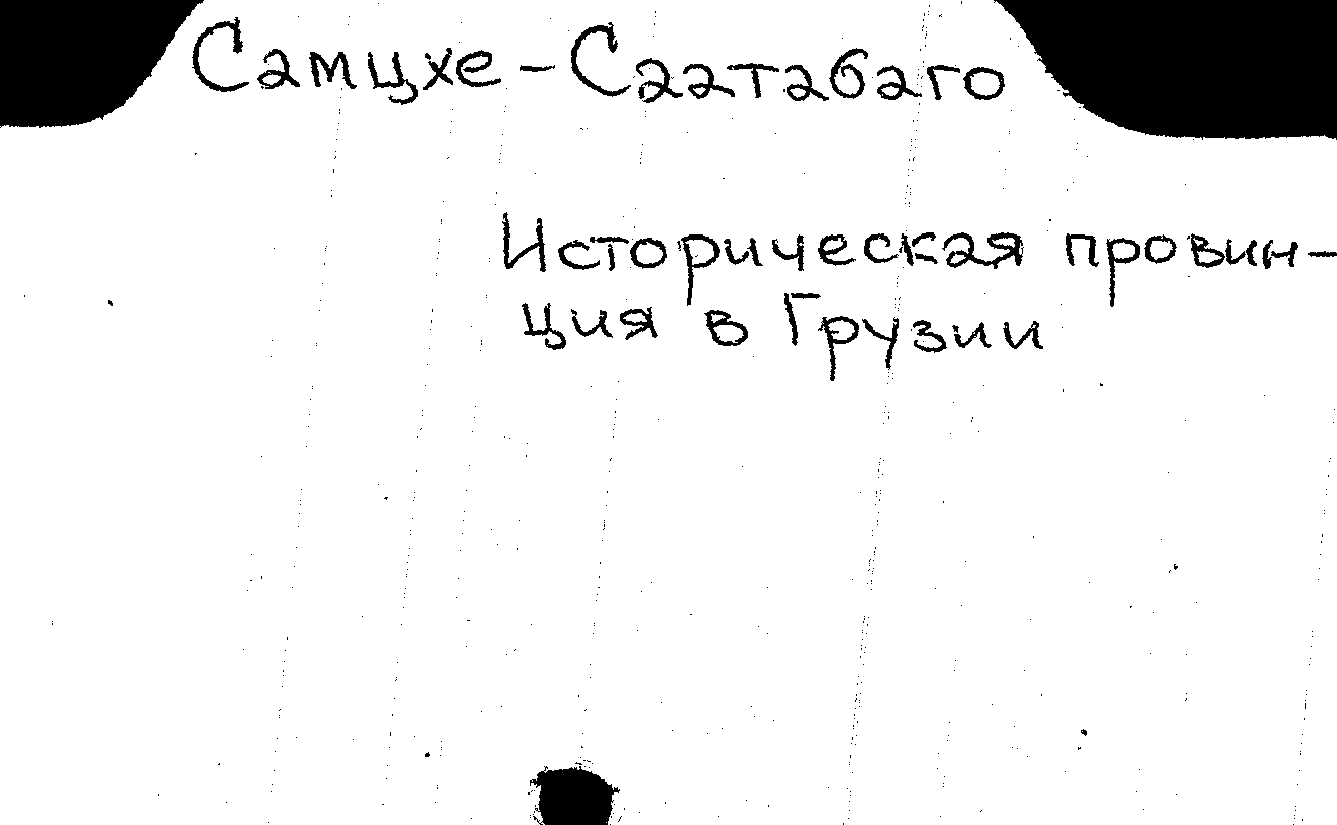 Самцхе-Саатабаго
Историческая провин-
ция в Грузии